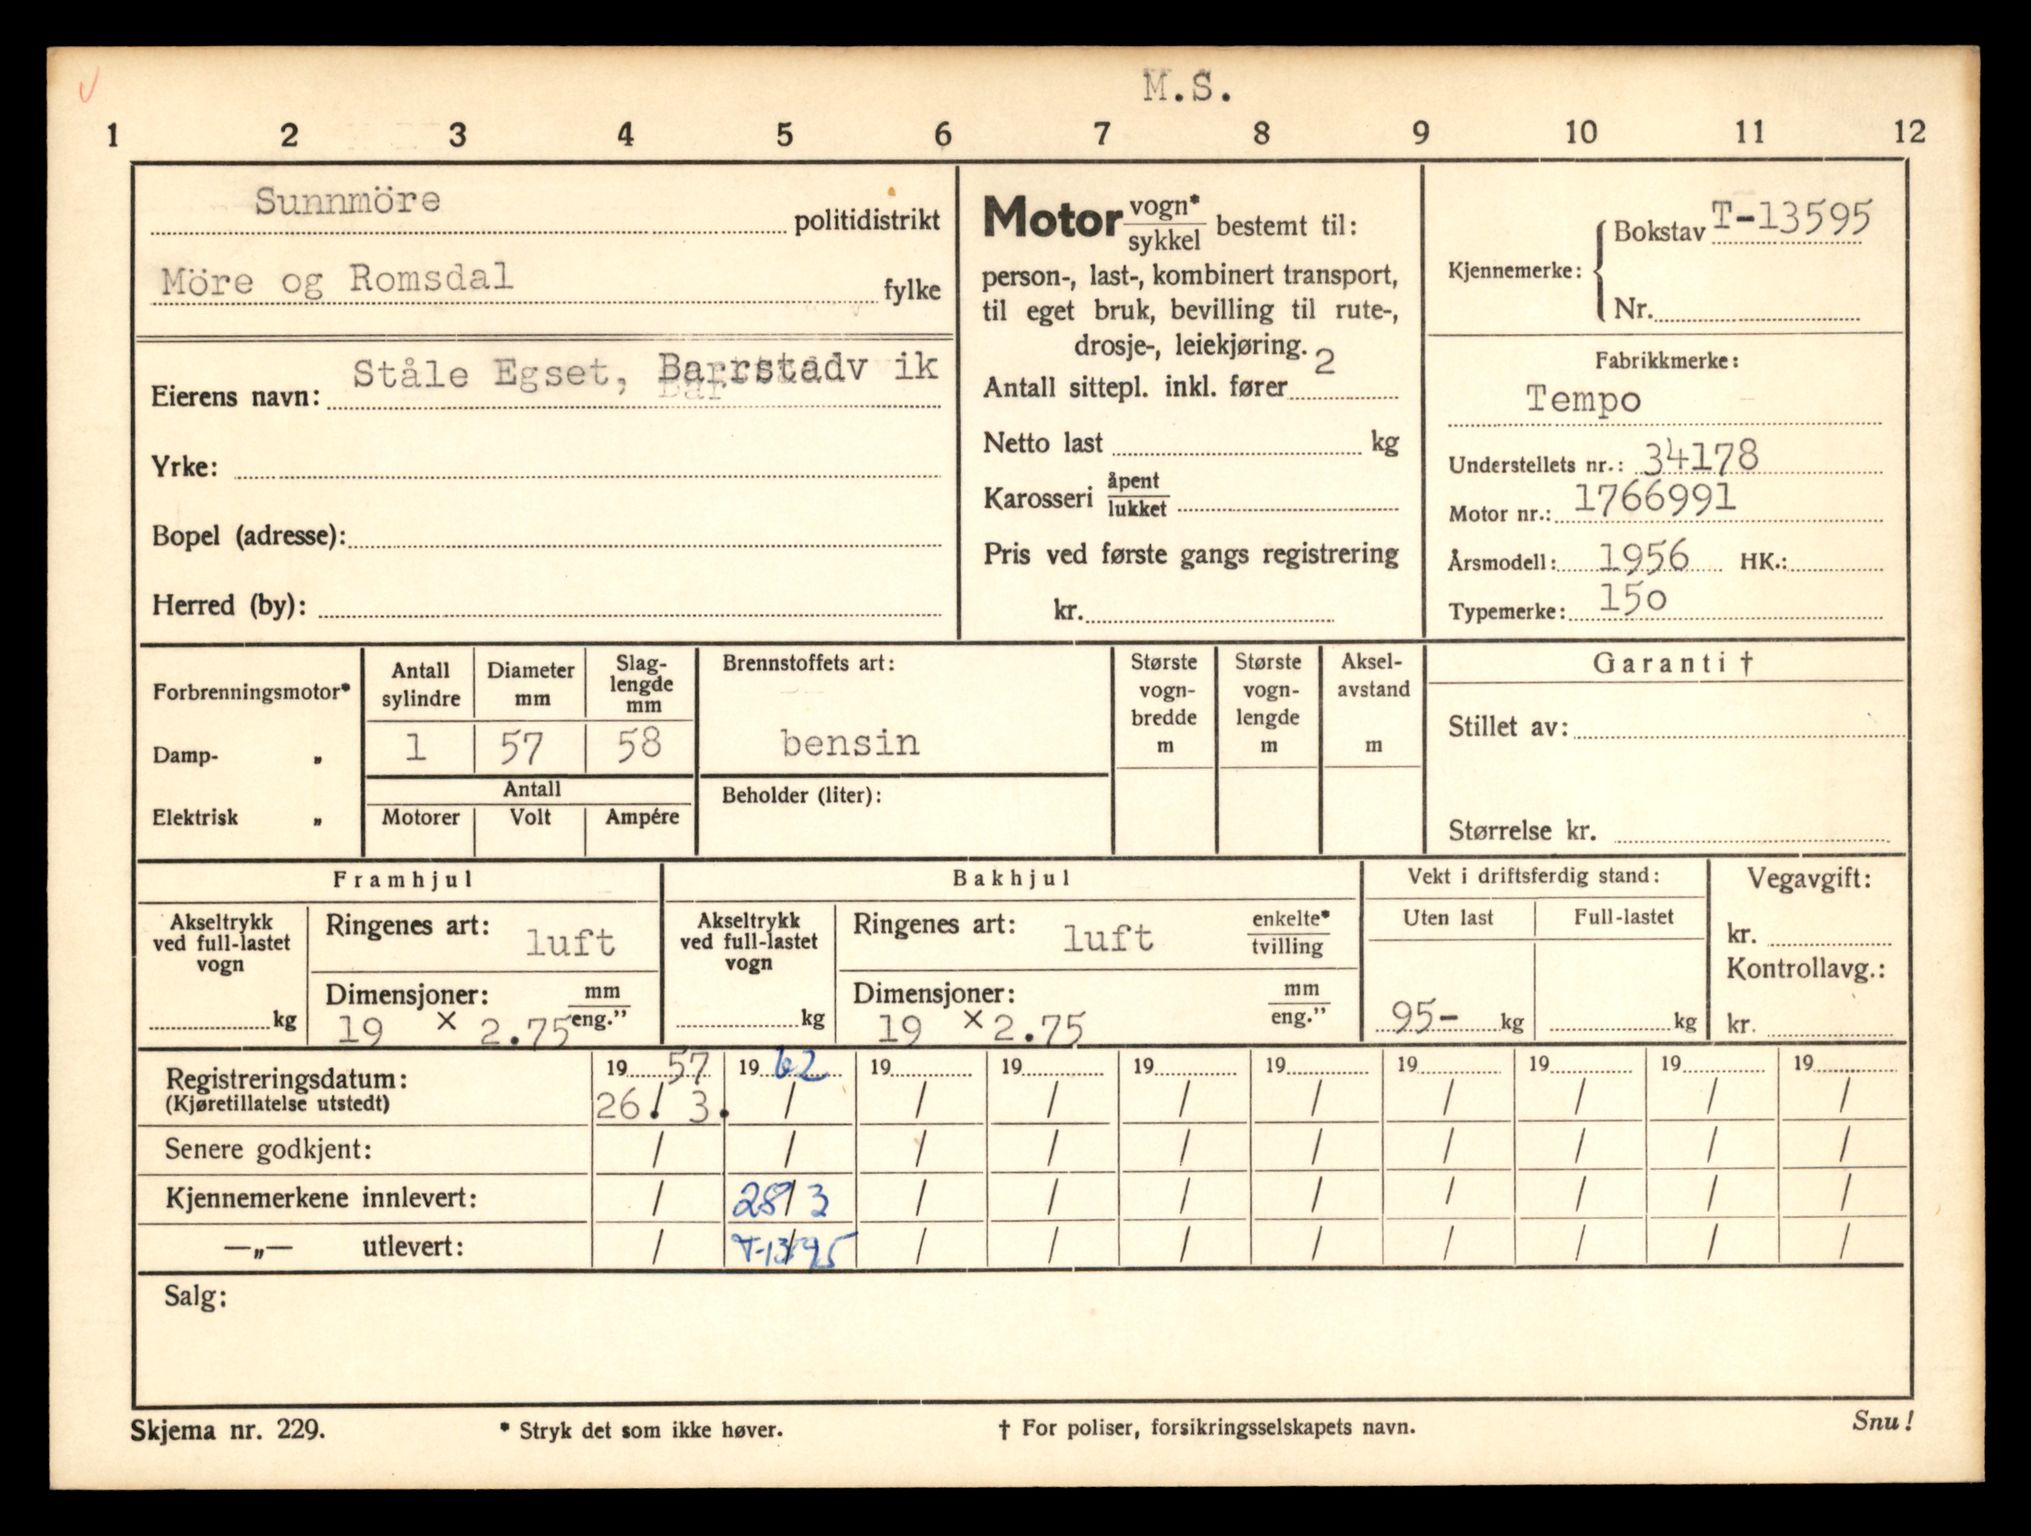 M.S.
1 2 3 4 5 6 7 8 9 10 11 12
Sunnmöre politidistrikt
Möre og Romsdal fylke
Eierens navn: Ståle Egset, Barrstadv ik
Yrke:
Bopel (adresse):
Herred (by):
Motor vogn*
sykkel bestemt til:
person-, last-, kombinert transport,
til eget bruk, bevilling til rute-,
drosje-, leiekjøring.
Antall sittepl. inkl. fører 2
Netto last kg
Karosseri åpent
lukket
Pris ved første gangs registrering
kr.
Kjennemerke: Bokstav T-13595
Nr.
Fabrikkmerke:
Tempo
Understellets nr.: 34178
Motor nr.: 1766991
Årsmodell: 1956 HK.:
Typemerke: 150
Forbrenningsmotor*
Damp- „
Elektrisk „
Antall sylindre
Diameter mm
Slag-
lengde
mm
1 57 58
Antall
Motorer Volt Ampére
Brennstoffets art:
bensin
Beholder (liter):
Største
vogn-
bredde
m
Største
vogn-
lengde
m
Aksel-
avstand
m
Garanti †
Stillet av:
Størrelse kr.
Framhjul
Akseltrykk
ved full-lastet
vogn
kg
Ringenes art: luft
Dimensjoner: mm
eng."
19 × 2.75
Bakhjul
Akseltrykk
ved full-lastet
vogn
kg
Ringenes art: luft enkelte*
tvilling
Dimensjoner: mm
eng."
19 × 2.75
Vekt i driftsferdig stand:
Uten last Full-lastet
95- kg kg
Vegavgift:
kr.
Kontrollavg.:
kr.
Registreringsdatum: 19 57 19 62 19 19 19 19 19 19 19 19
(Kjøretillatelse utstedt) 26./ 3. / / / / / / / / /
Senere godkjent: / / / / / / / / / /
Kjennemerkene innlevert: / 28/3 / / / / / / / /
—„— utlevert: / T-13595 / / / / / / / /
Salg:
Skjema nr. 229. * Stryk det som ikke høver. † For poliser, forsikringsselskapets navn. Snu!